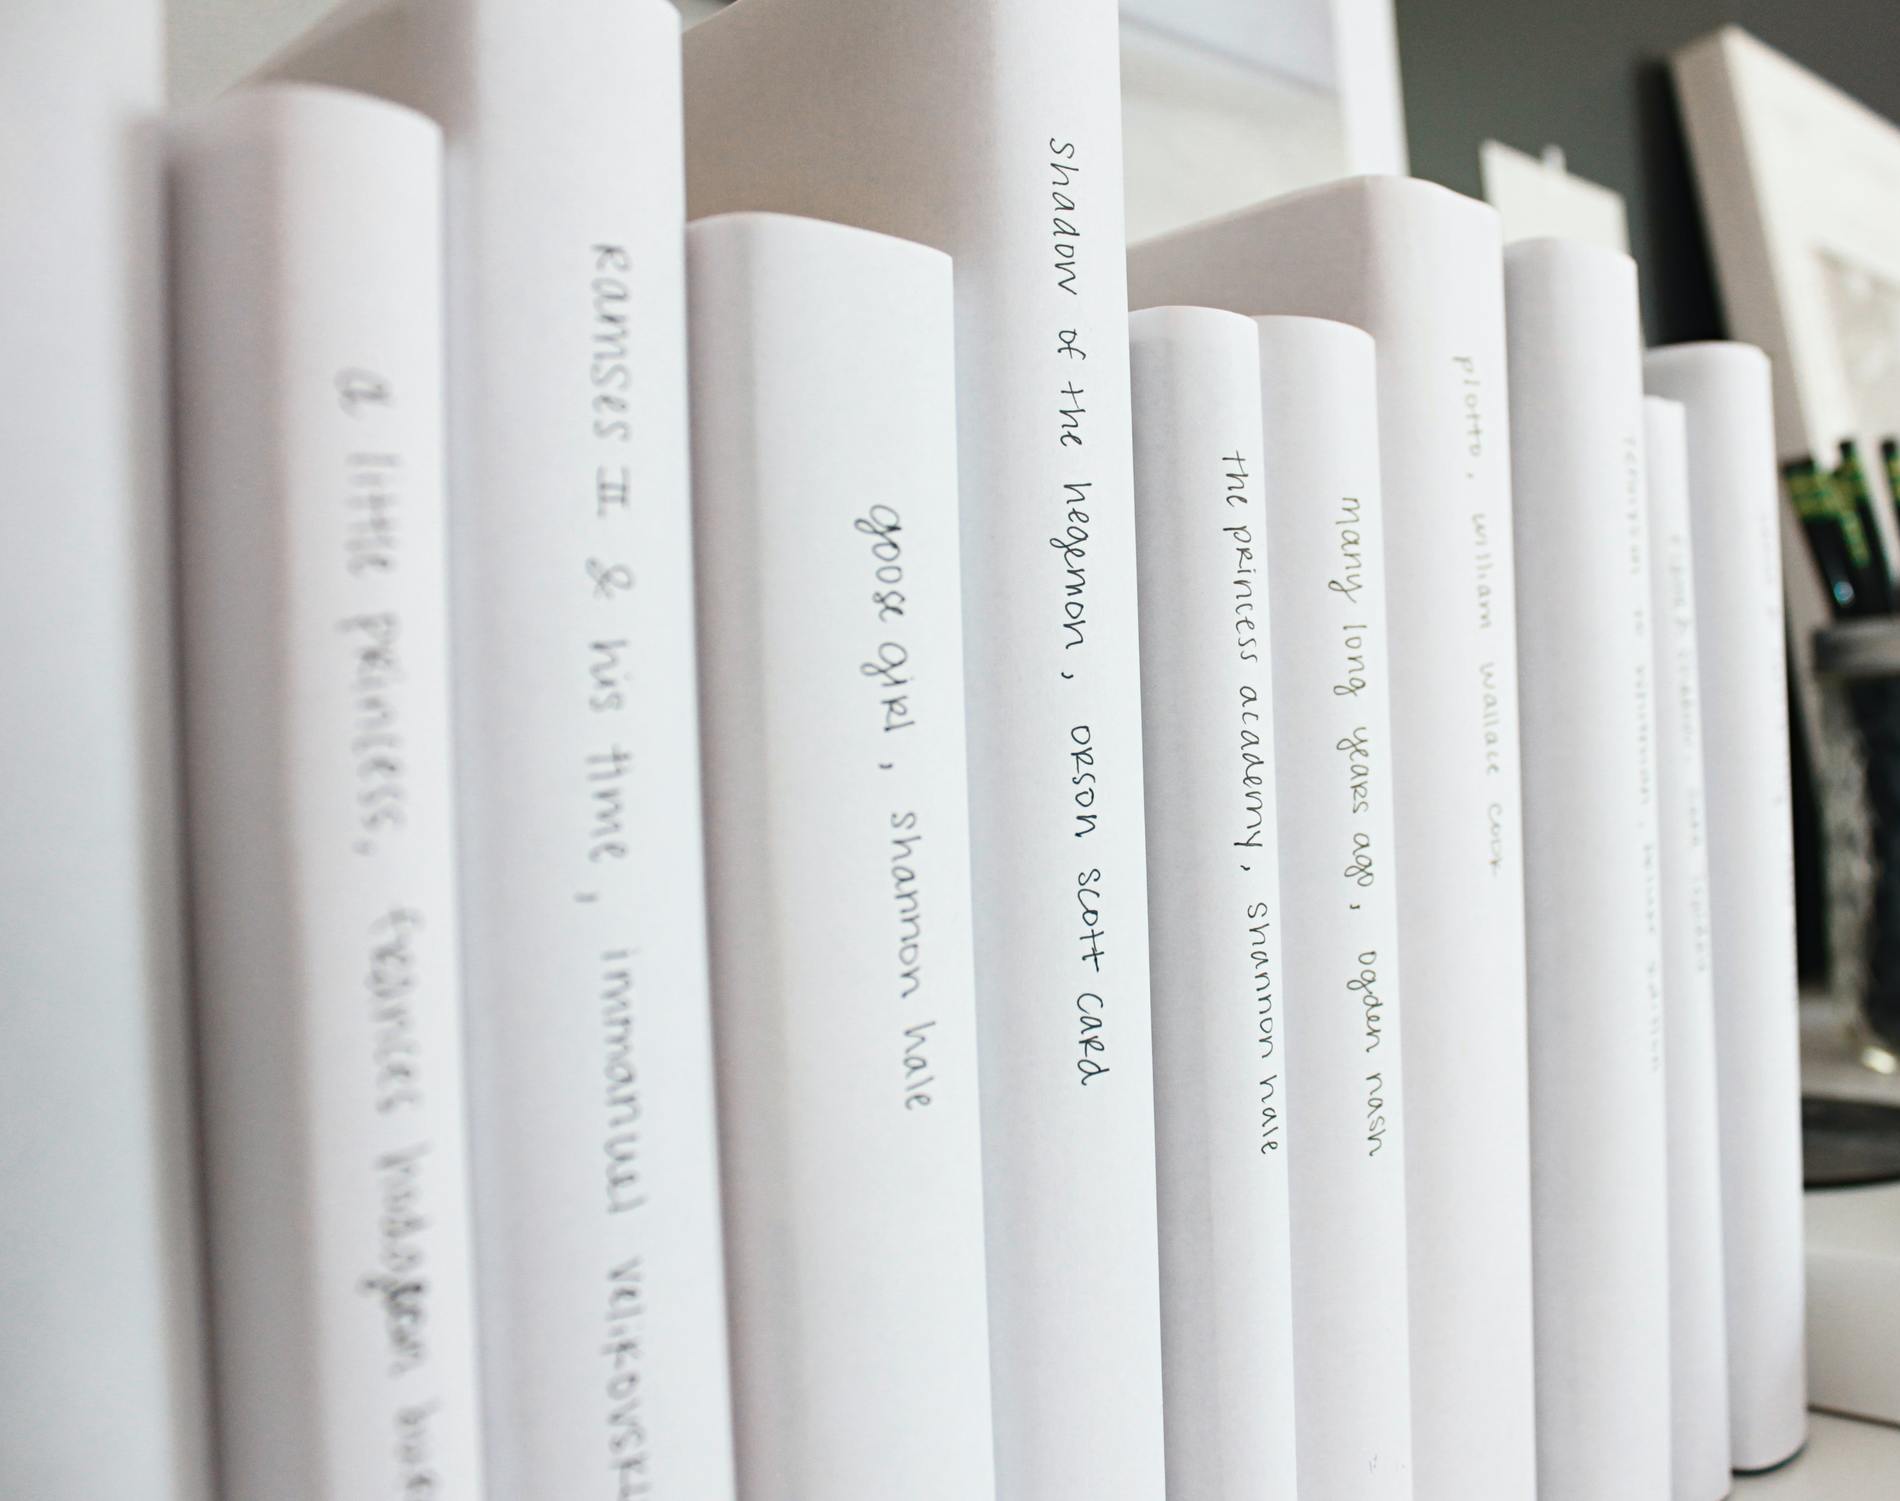 a little princess, frances hodgson
Ramses II & his time, immanuel velikovsk
goose girl, shannon hale
shadow of the hegemon, orson scott card
the princess academy, shannon hale
many long years ago, ogden nash
plotto, william wallace cook